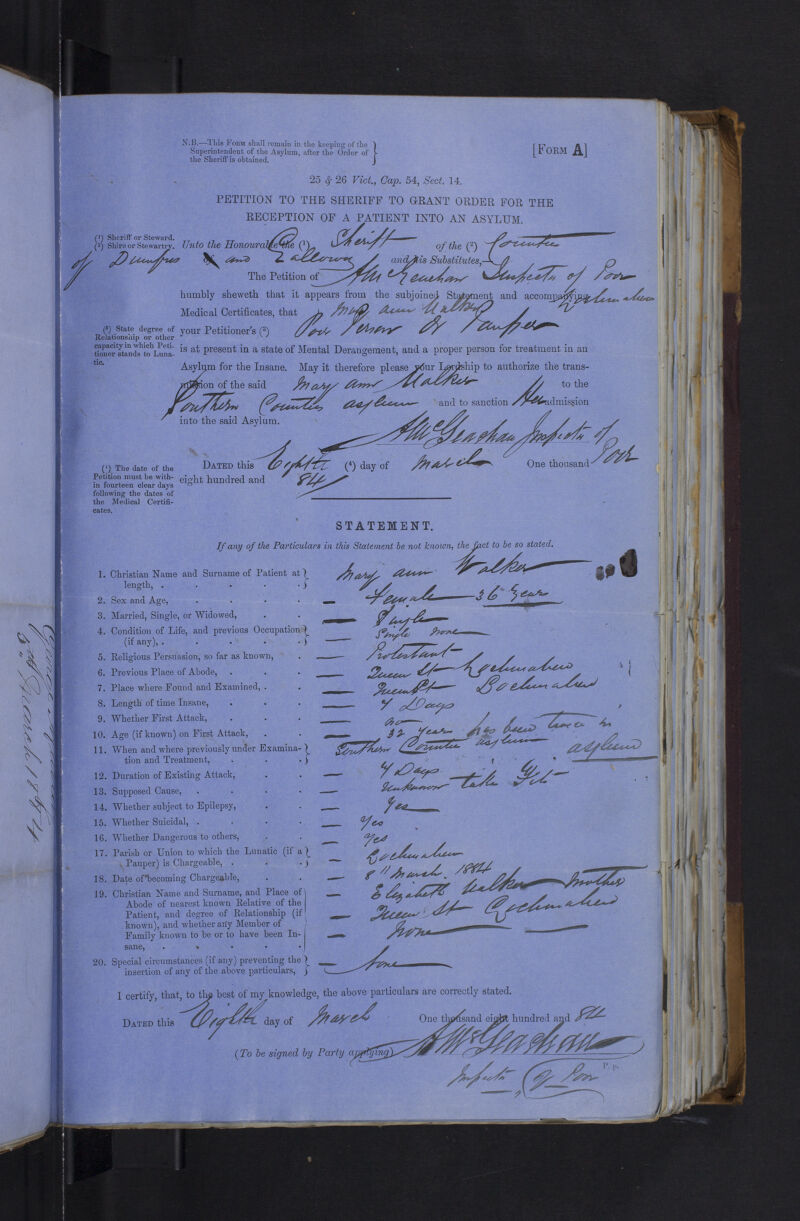 N.B.—This Form shall remain in the keeping of the
Superintendent of the Asylum, after the Order of
the Sheriff is obtained.
[Form A]
25 & 26 Vict., Cap. 54, Sect. 14.
PETITION TO THE SHERIFF TO GRANT ORDER FOR THE
RECEPTION OF A PATIENT INTO AN ASYLUM.
(¹) Sheriff or Steward.
(²) Shire or Stewartry.
Unto the Honourable the (¹) Sheriff of the (²) Counties
of Dumfries and Galloway and his Substitutes,
The Petition of A McGeachan Inspector of Poor
Lochmaben
humbly sheweth that it appears from the subjoined Statement and accompanying
Medical Certificates, that Mary Ann Walker
(³) State degree of
Relationship or other
capacity in which Peti-
tioner stands to Luna-
tic.
your Petitioner's (³) Poor Person or Pauper
is at present in a state of Mental Derangement, and a proper person for treatment in an
Asylum for the Insane. May it therefore please your Lordship to authorize the trans-
mission of the said Mary Ann Walker to the
Southern Counties Asylum and to sanction Her admission
into the said Asylum.
A McGeachan Inspector of
Poor
(⁴) The date of the
Petition must be with-
in fourteen clear days
following the dates of
the Medical Certifi-
cates.
Dated this Eighth (⁴) day of March One thousand
eight hundred and 84
STATEMENT.
If any of the Particulars in this Statement be not known, the fact to be so stated.
1. Christian Name and Surname of Patient at length, . Mary Ann Walker
2. Sex and Age, Female 36 Years
3. Married, Single, or Widowed, Single
4. Condition of Life, and previous Occupation (if any), . Single None
5. Religious Persuasion, so far as known, Protestant
6. Previous Place of Abode, . Queen St Lochmaben
7. Place where Found and Examined, . Queen St Lochmaben
8. Length of time Insane, 4 Days
9. Whether First Attack, no
10. Age (if known) on First Attack, 32 Years has been twice in
11. When and where previously under Examination and Treatment, Southern Counties Asylum asylum
12. Duration of Existing Attack, 4 Days
13. Supposed Cause, . Unknown take Fits
14. Whether subject to Epilepsy, Yes
15. Whether Suicidal, . Yes
16. Whether Dangerous to others, Yes
17. Parish or Union to which the Lunatic (if a Pauper) is Chargeable, . Lochmaben
18. Date of becoming Chargeable, 8" March 1884
19. Christian Name and Surname, and Place of Elizabeth Walker Mother
Abode of nearest known Relative of the
Patient, and degree of Relationship (if Queen St Lochmaben
known), and whether any Member of
Family known to be or to have been In- None
sane,
20. Special circumstances (if any) preventing the insertion of any of the above particulars, None
I certify, that, to the best of my knowledge, the above particulars are correctly stated.
Dated this Eighth day of March One thousand eight hundred and 84
(To be signed by Party applying) A McGeachan
Inspector of Poor